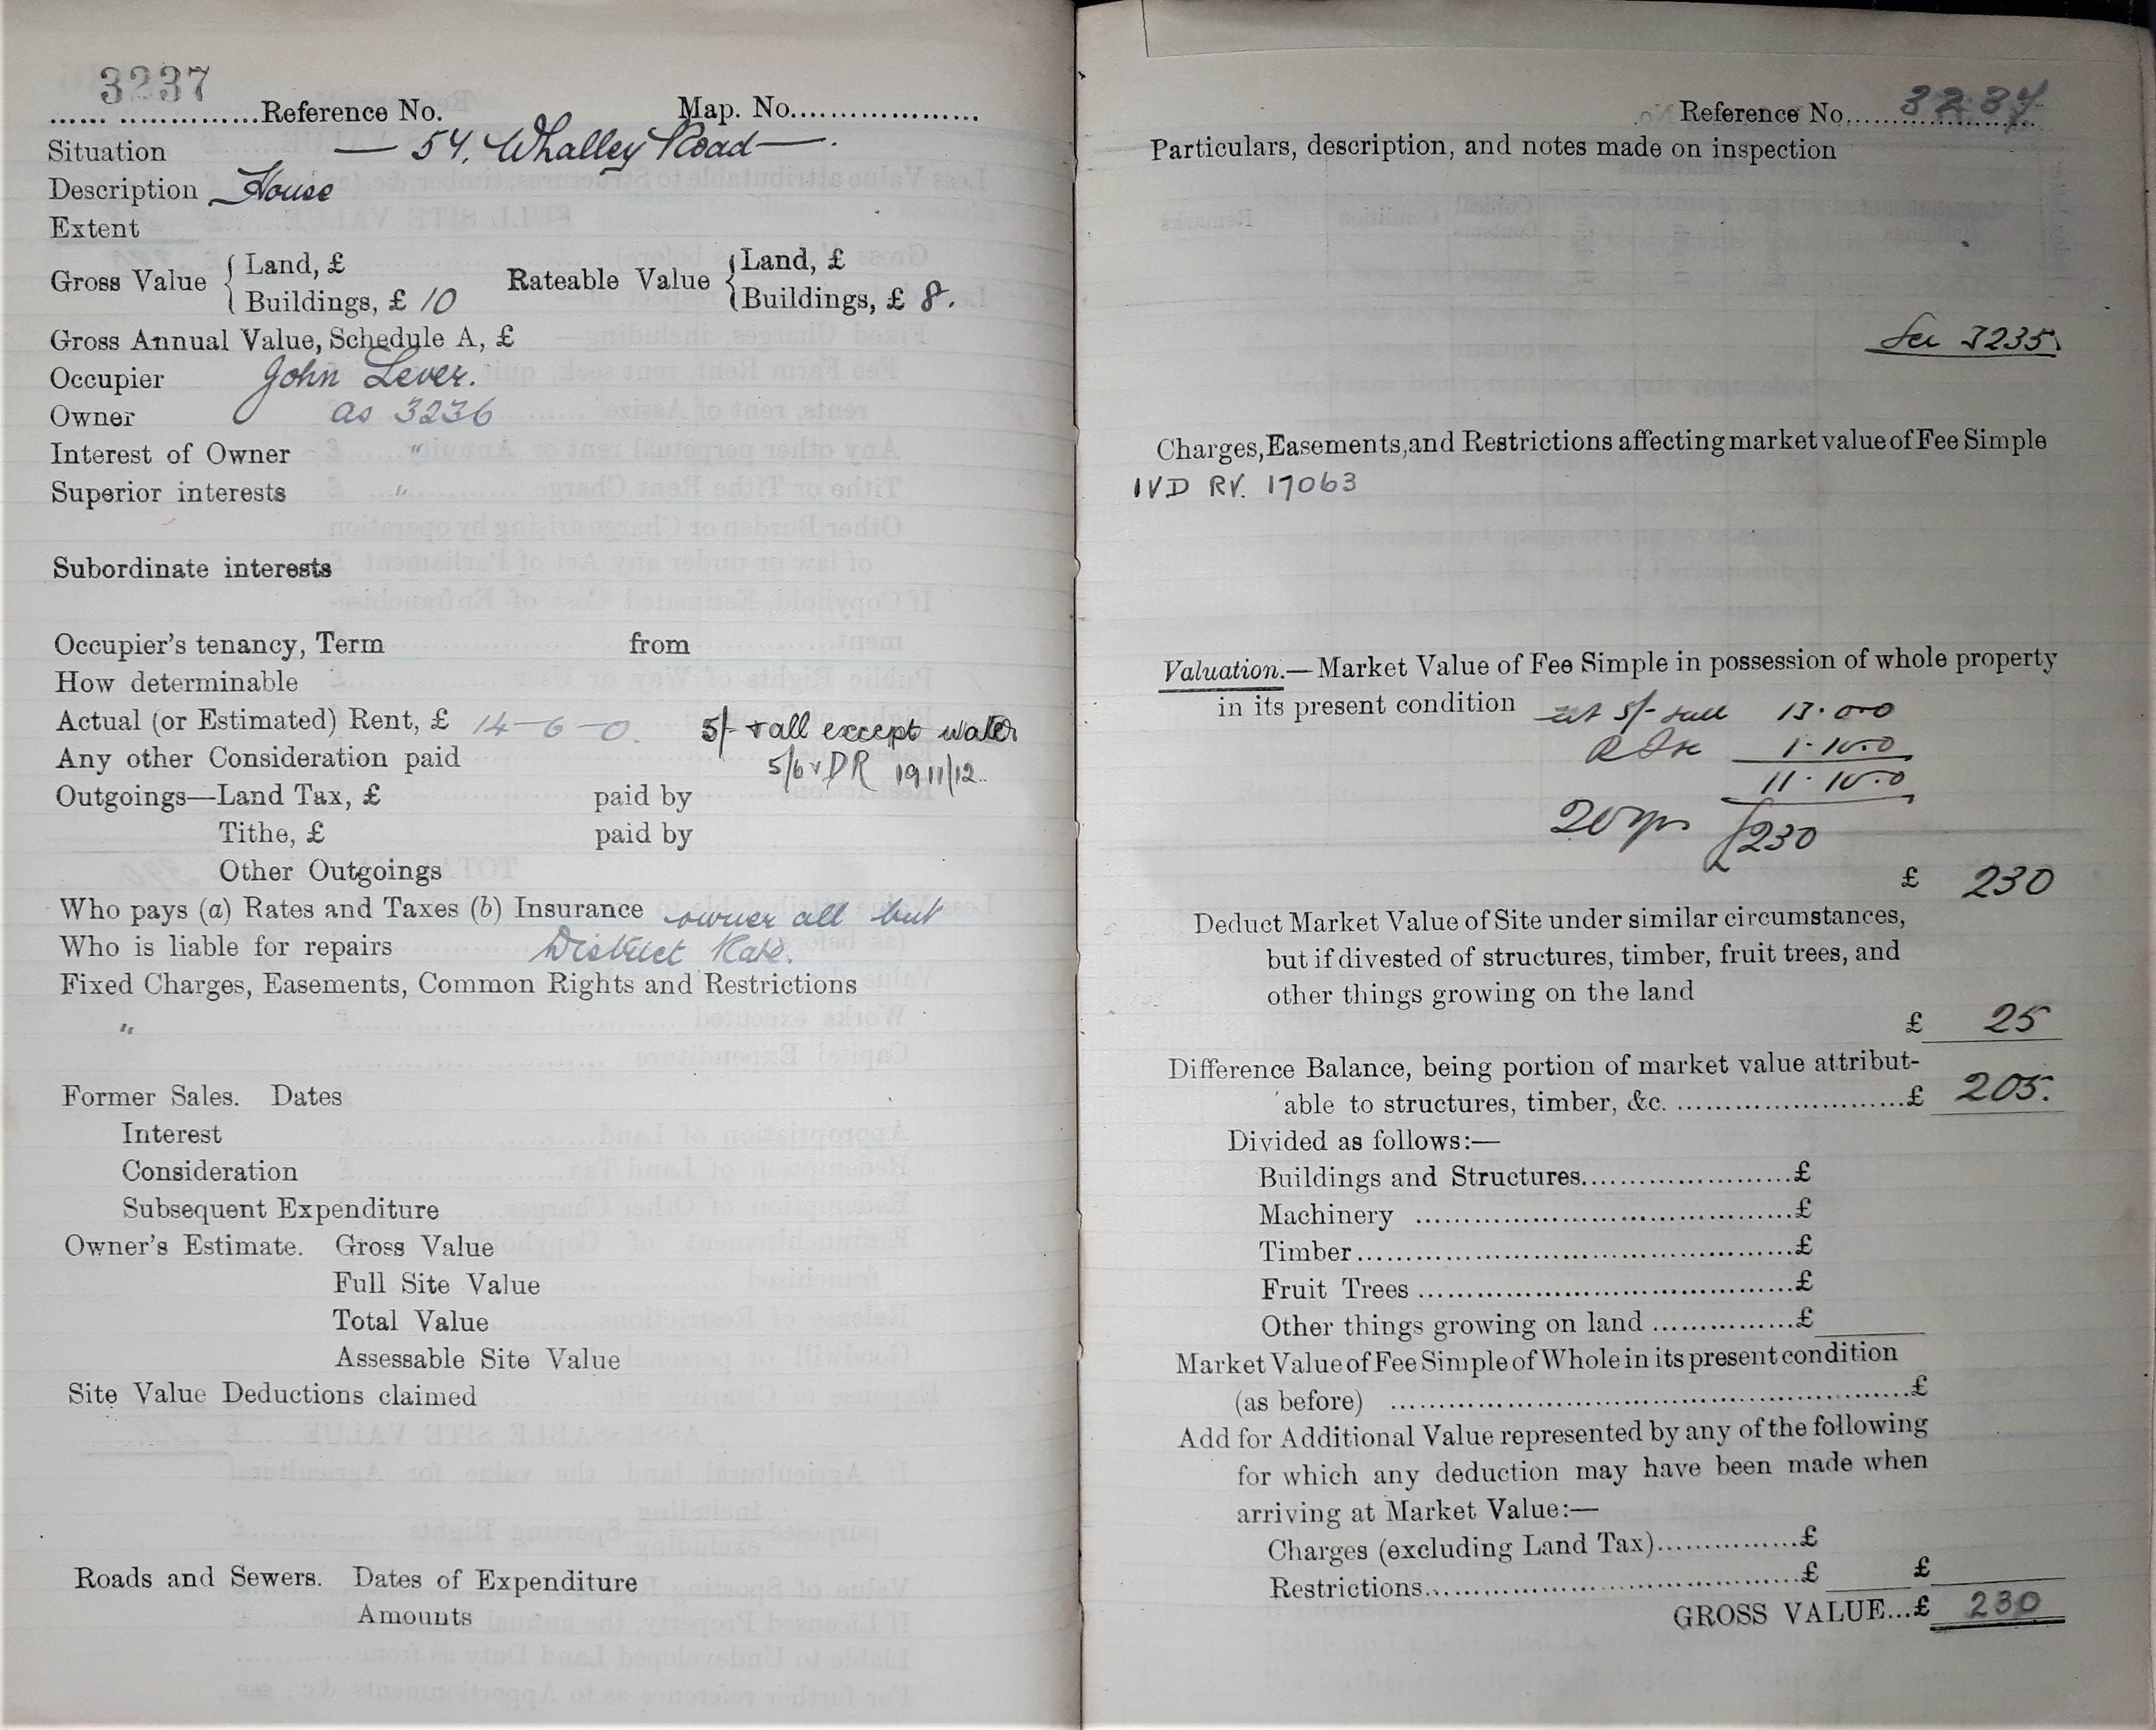 3237
.....................Reference No. Map. No.....................
Situation — 54, Whalley Road —.
Description House
Extent
Gross Value { Land, £ Rateable Value { Land, £
Buildings, £ 10 Buildings, £ 8.
Gross Annual Value, Schedule A, £
Occupier John Lever.
Owner as 3236
Interest of Owner "
Superior interests "
Subordinate interests
Occupier's tenancy, Term from
How determinable
Actual (or Estimated) Rent, £ 14-6-0. 5/- + all except water
Any other Consideration paid 5/6 + DR 1911/12.
Outgoings—Land Tax, £ paid by
Tithe, £ paid by
Other Outgoings
Who pays (a) Rates and Taxes (b) Insurance owner all but
Who is liable for repairs District Rate.
Fixed Charges, Easements, Common Rights and Restrictions
"
Former Sales. Dates
Interest
Consideration
Subsequent Expenditure
Owner's Estimate. Gross Value
Full Site Value
Total Value
Assessable Site Value
Site Value Deductions claimed
Roads and Sewers. Dates of Expenditure
Amounts
Reference No. 3237
Particulars, description, and notes made on inspection
See 3235
Charges, Easements, and Restrictions affecting market value of Fee Simple
IVD RV. 17063
Valuation.—Market Value of Fee Simple in possession of whole property
in its present condition at 5/- 13.0.0
1.10.0
11.10.0
20 yrs £230
£ 230
Deduct Market Value of Site under similar circumstances,
but if divested of structures, timber, fruit trees, and
other things growing on the land
£ 25
Difference Balance, being portion of market value attribut-
able to structures, timber, &c. .....................£ 205.
Divided as follows:—
Buildings and Structures.....................£
Machinery .....................£
Timber.....................£
Fruit Trees .....................£
Other things growing on land ...............£
Market Value of Fee Simple of Whole in its present condition
(as before) .....................£
Add for Additional Value represented by any of the following
for which any deduction may have been made when
arriving at Market Value:—
Charges (excluding Land Tax)...............£
Restrictions.....................£ £
GROSS VALUE...£ 230